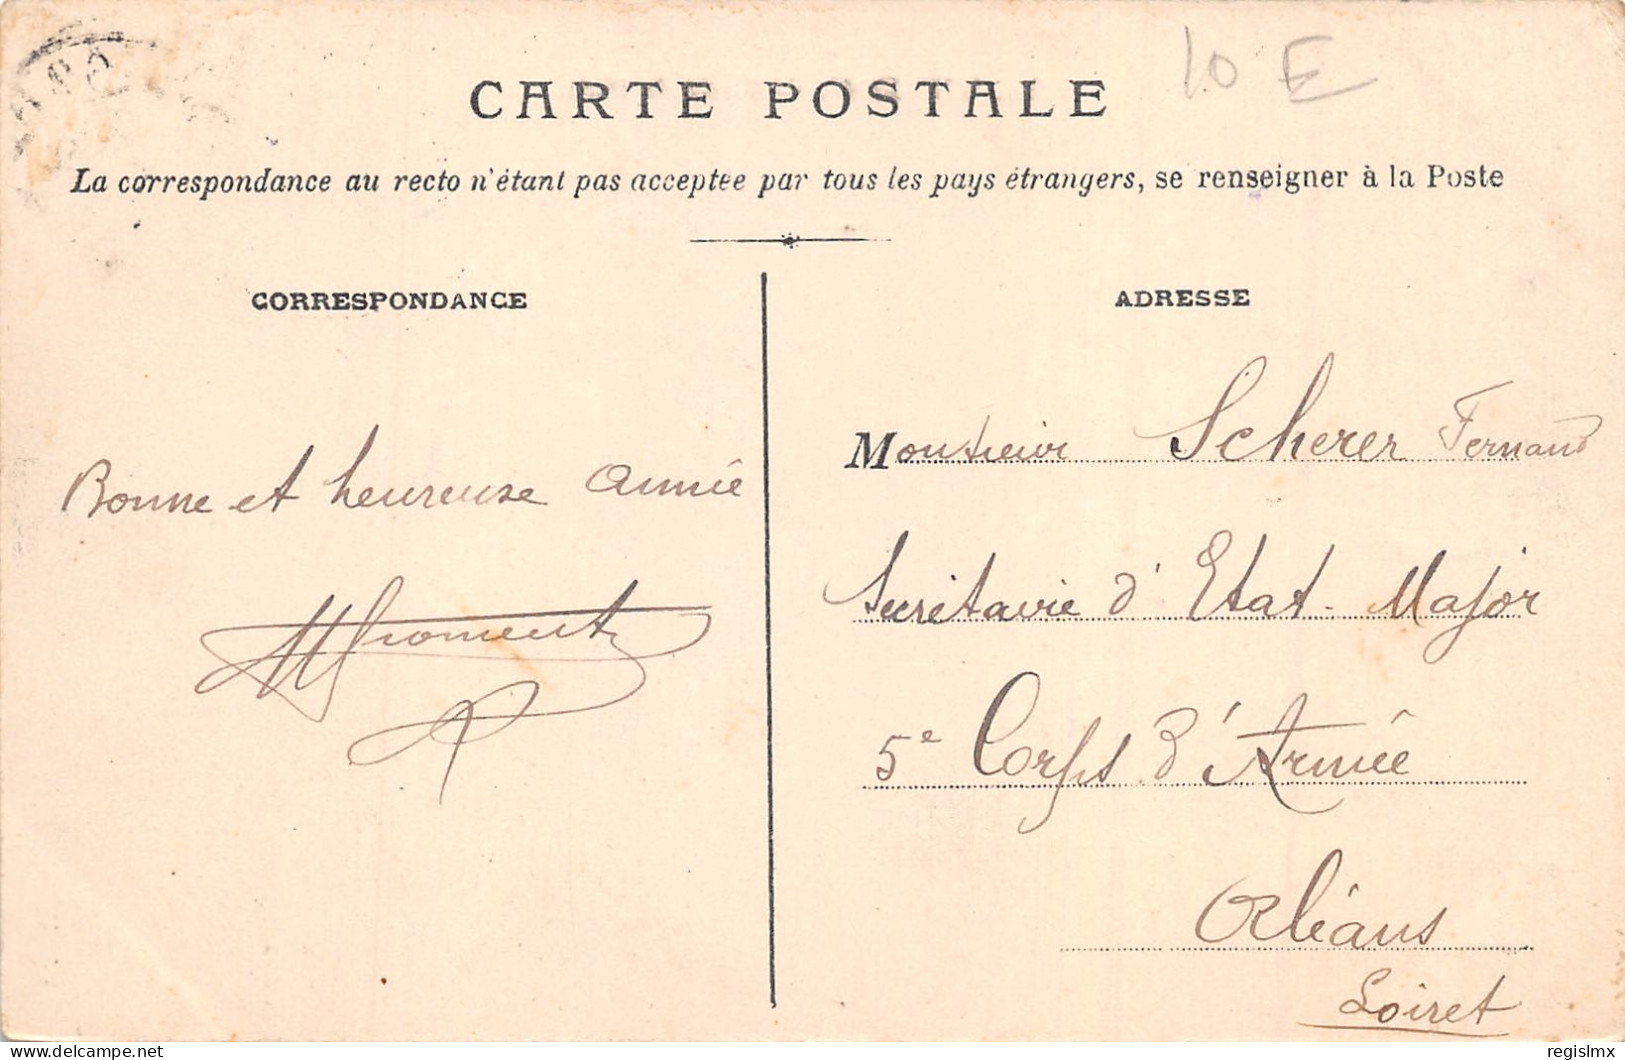 10 E
CARTE POSTALE
La correspondance au recto n'étant pas acceptée par tous les pays étrangers, se renseigner à la Poste
CORRESPONDANCE
Bonne et heureuse année
Froment
ADRESSE
Monsieur Scherer Fernand
Secrétaire d'Etat-Major
5e Corps d'Armée
Orléans
Loiret
delcampe.net
regislmx